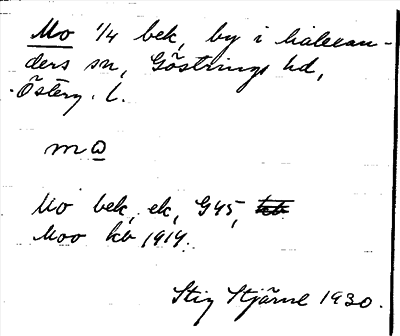 Mo 1/4 bek, by i halle­an-
ders sn, Göstrings hd,
Österg. l.
mo
Mo bek, ek, G45,
Moo kb 1914.
Stig Stjärne 1930.